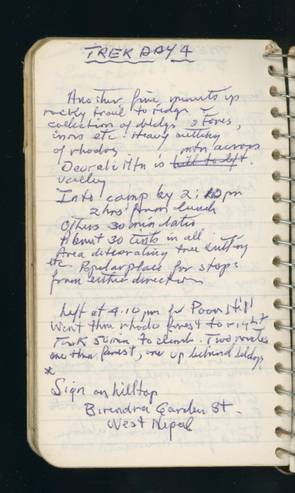 TREK DAY 4
Another five minutes up
rocky trail to ridge
collection of bldgs stores,
inns etc. Heavy cutting
of rhodos mtn across
Deorali Mtn is hill to left.
valley
Into camp by 2:10 pm
2 hrs from lunch
Others 30 min later
About 30 tents in all
Area deteriorating tree cutting
etc. Popular place for stops
from either direction
Left at 4:10 pm for Poon Hill
Went thru rhodo forest to right
Took 50 min to climb. Two routes
one thru forest, one up behind bldgs
x
Sign on hilltop
Birendra Garden St.
West Nepal